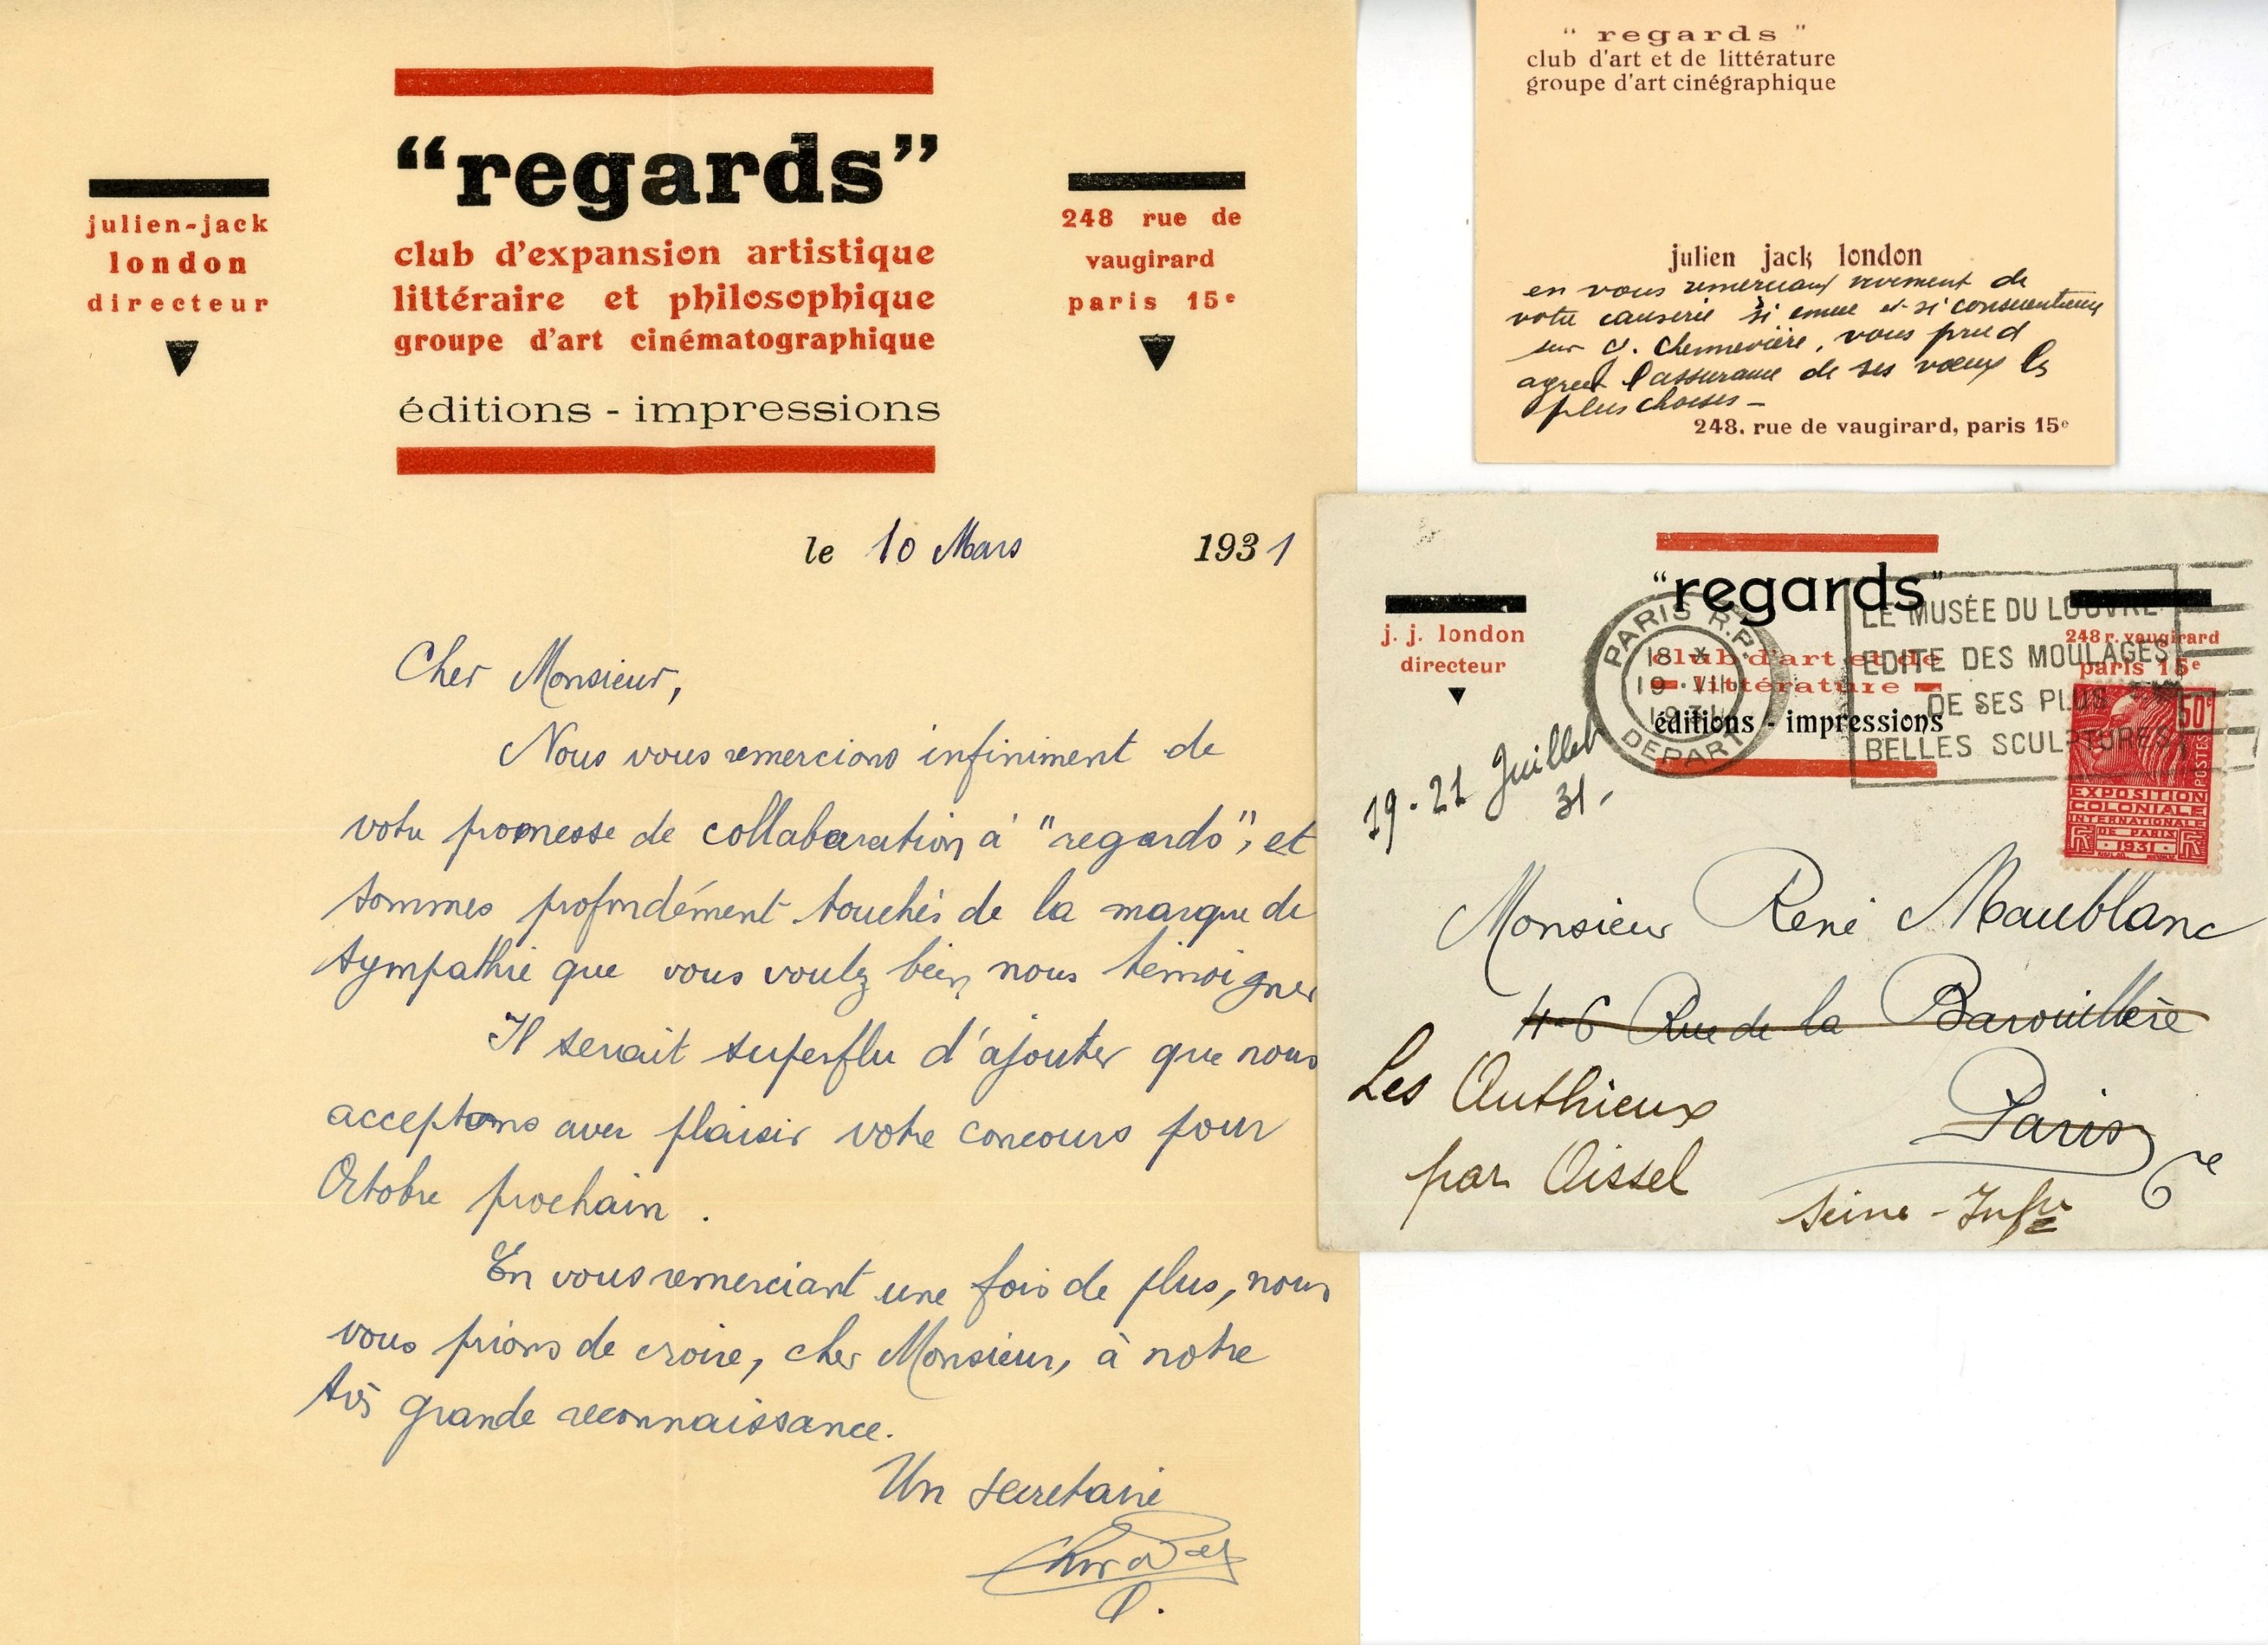 "regards"
club d'expansion artistique
littéraire et philosophique
groupe d'art cinématographique
éditions - impressions
julien-jack
london
directeur
248 rue de
vaugirard
paris 15e
le 10 Mars 1931
Cher Monsieur,
Nous vous remercions infiniment de
votre promesse de collaboration à "regards", et
sommes profondément touchés de la marque de
sympathie que vous voulez bien nous témoigner
Il serait superflu d'ajouter que nous
acceptons avec plaisir votre concours pour
Octobre prochain.
En vous remerciant une fois de plus, nous
vous prions de croire, cher Monsieur, à notre
très grande reconnaissance.
Un secretaire
"regards"
club d'art et de littérature
groupe d'art cinégraphique
julien jack london
en vous remerciant vivement de
votre causerie si émue et si consciencieuse
sur G. Chennevière, vous prie d
agréer l'assurance de ses vœux les
plus choisis -
248. rue de vaugirard, paris 15e
"regards"
club d'art et de
littérature
éditions - impressions
j. j. london
directeur
248 r. vaugirard
paris 15e
PARIS R.P.
18 *
19 · VII
DEPART
LE MUSÉE DU LOUVRE
EDITE DES MOULAGES
DE SES PLUS
BELLES SCULPTURES
50c
POSTES
EXPOSITION
COLONIALE
INTERNATIONALE
DE PARIS
1931
19-21 Juillet
31-
Monsieur René Maublanc
4-6 Rue de la Barouillère
Paris 6e
Les Authieux
par Oissel
Seine-Infre